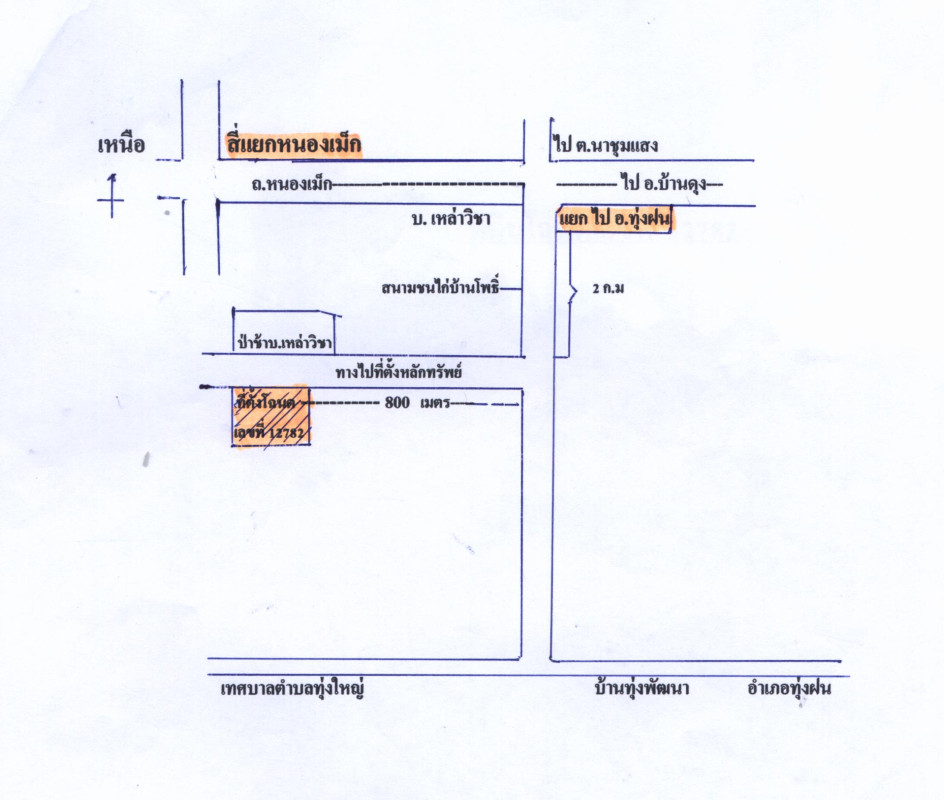 เหนือ
สี่แยกหนองเม็ก
ไป ต.นาชุมแสง
ถ.หนองเม็ก
ไป อ.บ้านดุง
บ. เหล่าวิชา
แยก ไป อ.ทุ่งฝน
สนามชนไก่บ้านโพธิ์
2 ก.ม
ป่าช้าบ.เหล่าวิชา
ทางไปที่ตั้งหลักทรัพย์
ที่ตั้งโฉนด
800 เมตร
เลขที่ 12782
เทศบาลตำบลทุ่งใหญ่
บ้านทุ่งพัฒนา
อำเภอทุ่งฝน